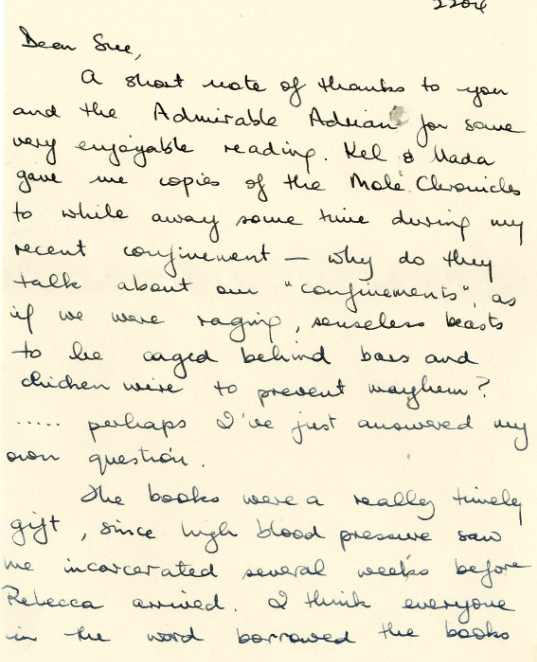 2204
Dear Sue,
A short note of thanks to you
and the Admirable Adrian for some
very enjoyable reading. Kel & Nada
gave me copies of the Mole Chronicles
to while away some time during my
recent confinement – why do they
talk about our "confinements", as
if we were raging, senseless beasts
to be caged behind bars and
chicken wire to prevent mayhem?
..... perhaps I've just answered my
own question.
The books were a really timely
gift, since high blood pressure saw
me incarcerated several weeks before
Rebecca arrived. I think everyone
in the word borrowed the books